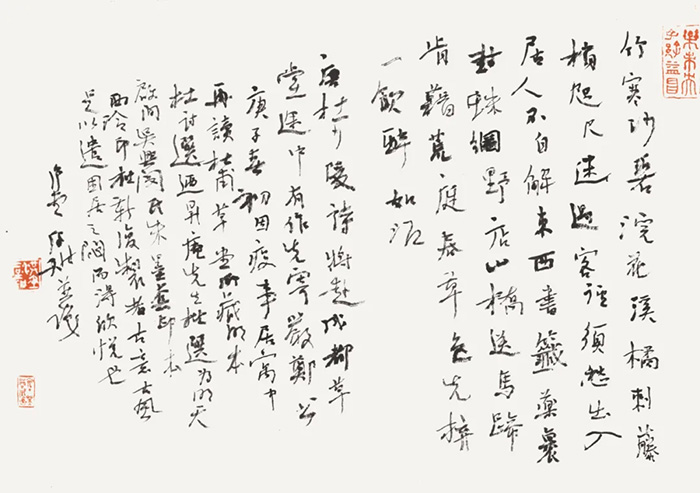 竹寒沙碧浣花溪橘刺藤
梢咫尺迷過客徑須愁出入
居人不自解東西書籤藥裹
封蛛網野店山橋送馬蹄
肯藉荒庭春草色先拚
一飲醉如泥
唐杜少陵詩將赴成都草
堂途中有作先寄嚴鄭公
庚子春初因疫事居寓中
再讀杜甫草堂所藏明本
杜詩選迺昇庵先生批選為明天
啟間吳興閔氏朱墨套印本
西泠印社新復製者古意古風
足以遣困居之悶而得欣悦也
並識